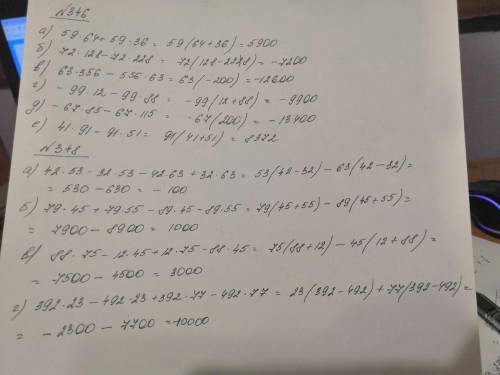 №346
а) 59·64+59·36 = 59(64+36)=5900
б) 72·128-72·228 = 72(128-228)= -7200
в) 63·356 - 556·63 = 63(-200)= -12600
г) -99·12 -99·88 = -99(12+88)= -9900
д) -67·85-67·115 = -67(200)= -13400
е) 41·91 - 91·51 = 91(41+51)= 8372
№348
а) 42·53 - 32·53 - 42·63 + 32·63 = 53(42-32) - 63(42-32)=
= 530 - 630 = - 100
б) 79·45 + 79·55 - 89·45 - 89·55 = 79(45+55) - 89(45+55)=
= 7900 - 8900 = 1000
в) 88·75 - 12·45 + 12·75 - 88·45 = 75(88+12) - 45(12+88)=
= 7500 - 4500 = 3000
г) 392·23 - 492·23 + 392·77 - 492·77 = 23(392-492) + 77(392-492)=
= - 2300 - 7700 = -10000